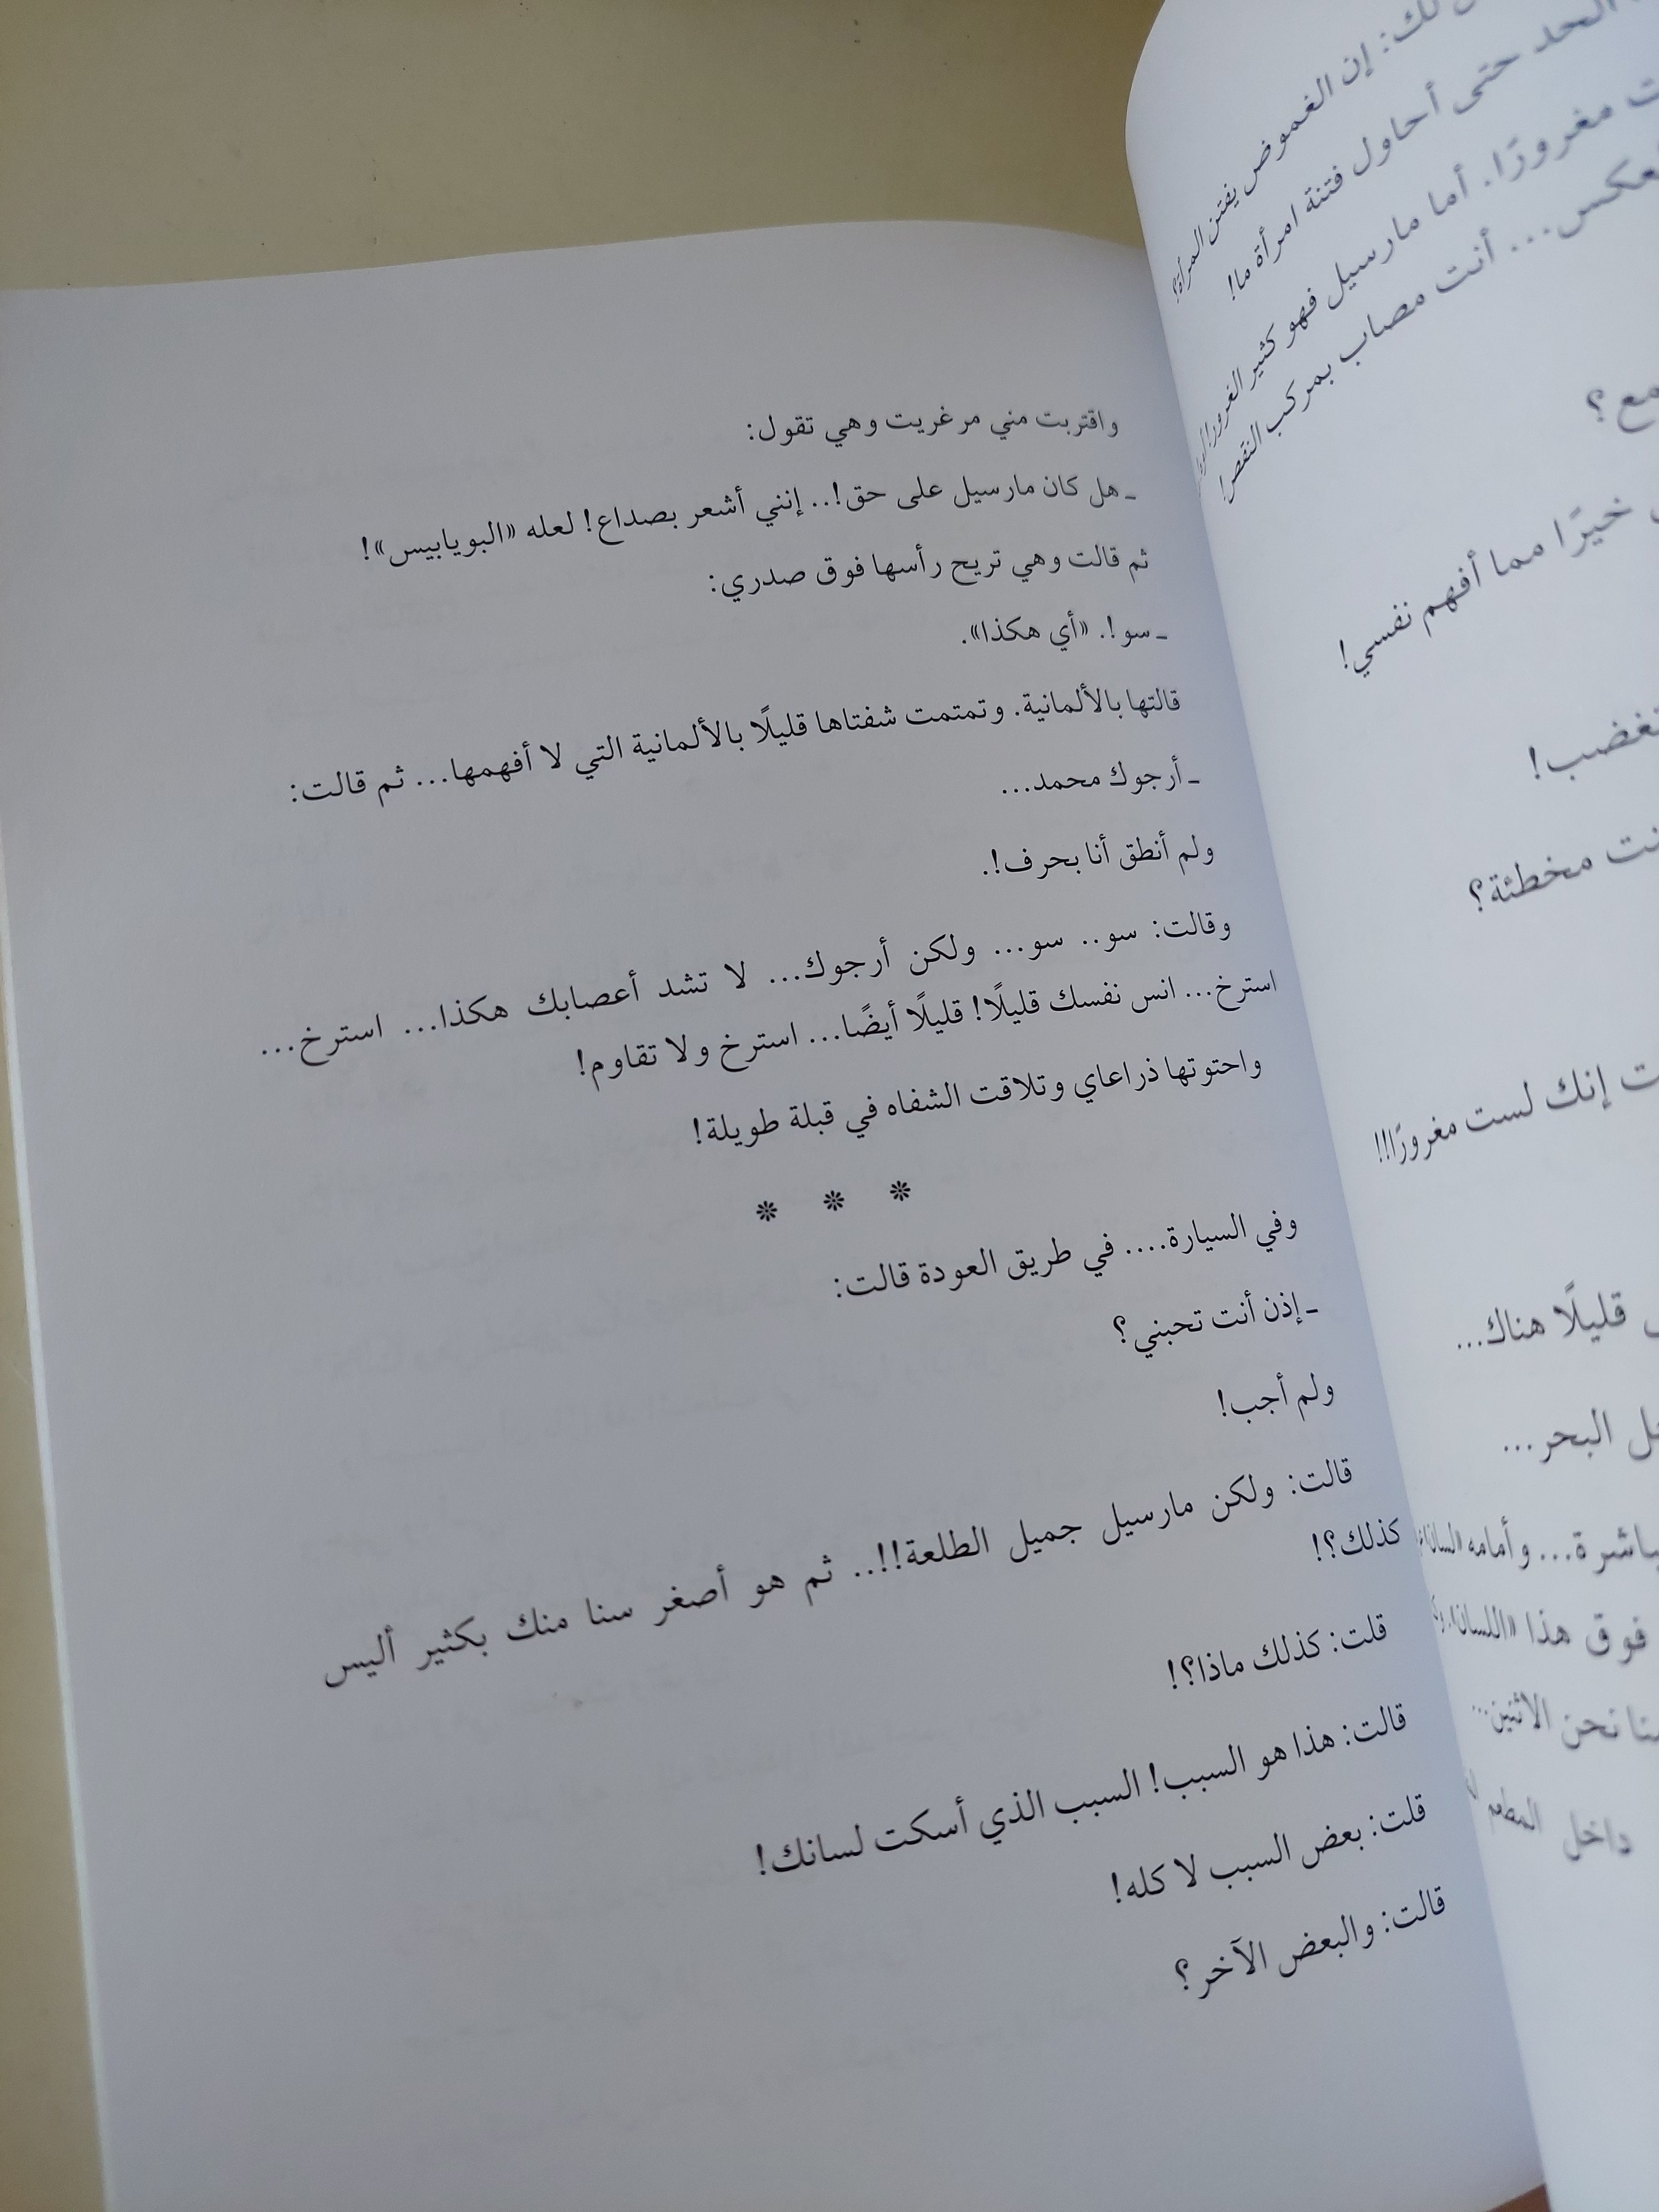 واقتربت مني مرغريت وهي تقول:
ـ هل كان مارسيل على حق!.. إنني أشعر بصداع! لعله «البويابيس»!
ثم قالت وهي تريح رأسها فوق صدري:
ـ سو!. «أي هكذا».
قالتها بالألمانية. وتمتمت شفتاها قليلًا بالألمانية التي لا أفهمها... ثم قالت:
ـ أرجوك محمد...
ولم أنطق أنا بحرف!.
وقالت: سو.. سو... ولكن أرجوك... لا تشد أعصابك هكذا... استرخ...
استرخ... انس نفسك قليلًا! قليلًا أيضًا... استرخ ولا تقاوم!
واحتوتها ذراعاي وتلاقت الشفاه في قبلة طويلة!
* * *
وفي السيارة.... في طريق العودة قالت:
ـ إذن أنت تحبني؟
ولم أجب!
قالت: ولكن مارسيل جميل الطلعة!!.. ثم هو أصغر سنا منك بكثير أليس
كذلك؟!
قلت: كذلك ماذا؟!
قالت: هذا هو السبب! السبب الذي أسكت لسانك!
قلت: بعض السبب لا كله!
قالت: والبعض الآخر؟
لك: إن الغموض يفتن المرأة؟
الحد حتى أحاول فتنة امرأة ما!
مغرورًا. أما مارسيل فهو كثير الغرور
أنت مصاب بمركب النقص!
خيرًا مما أفهم نفسي!
مخطئة؟
إنك لست مغرورًا!!!
قليلًا هناك...
البحر...
وأمامه
فوق هذا «اللسان»
نحن الاثنين...
داخل المطعم